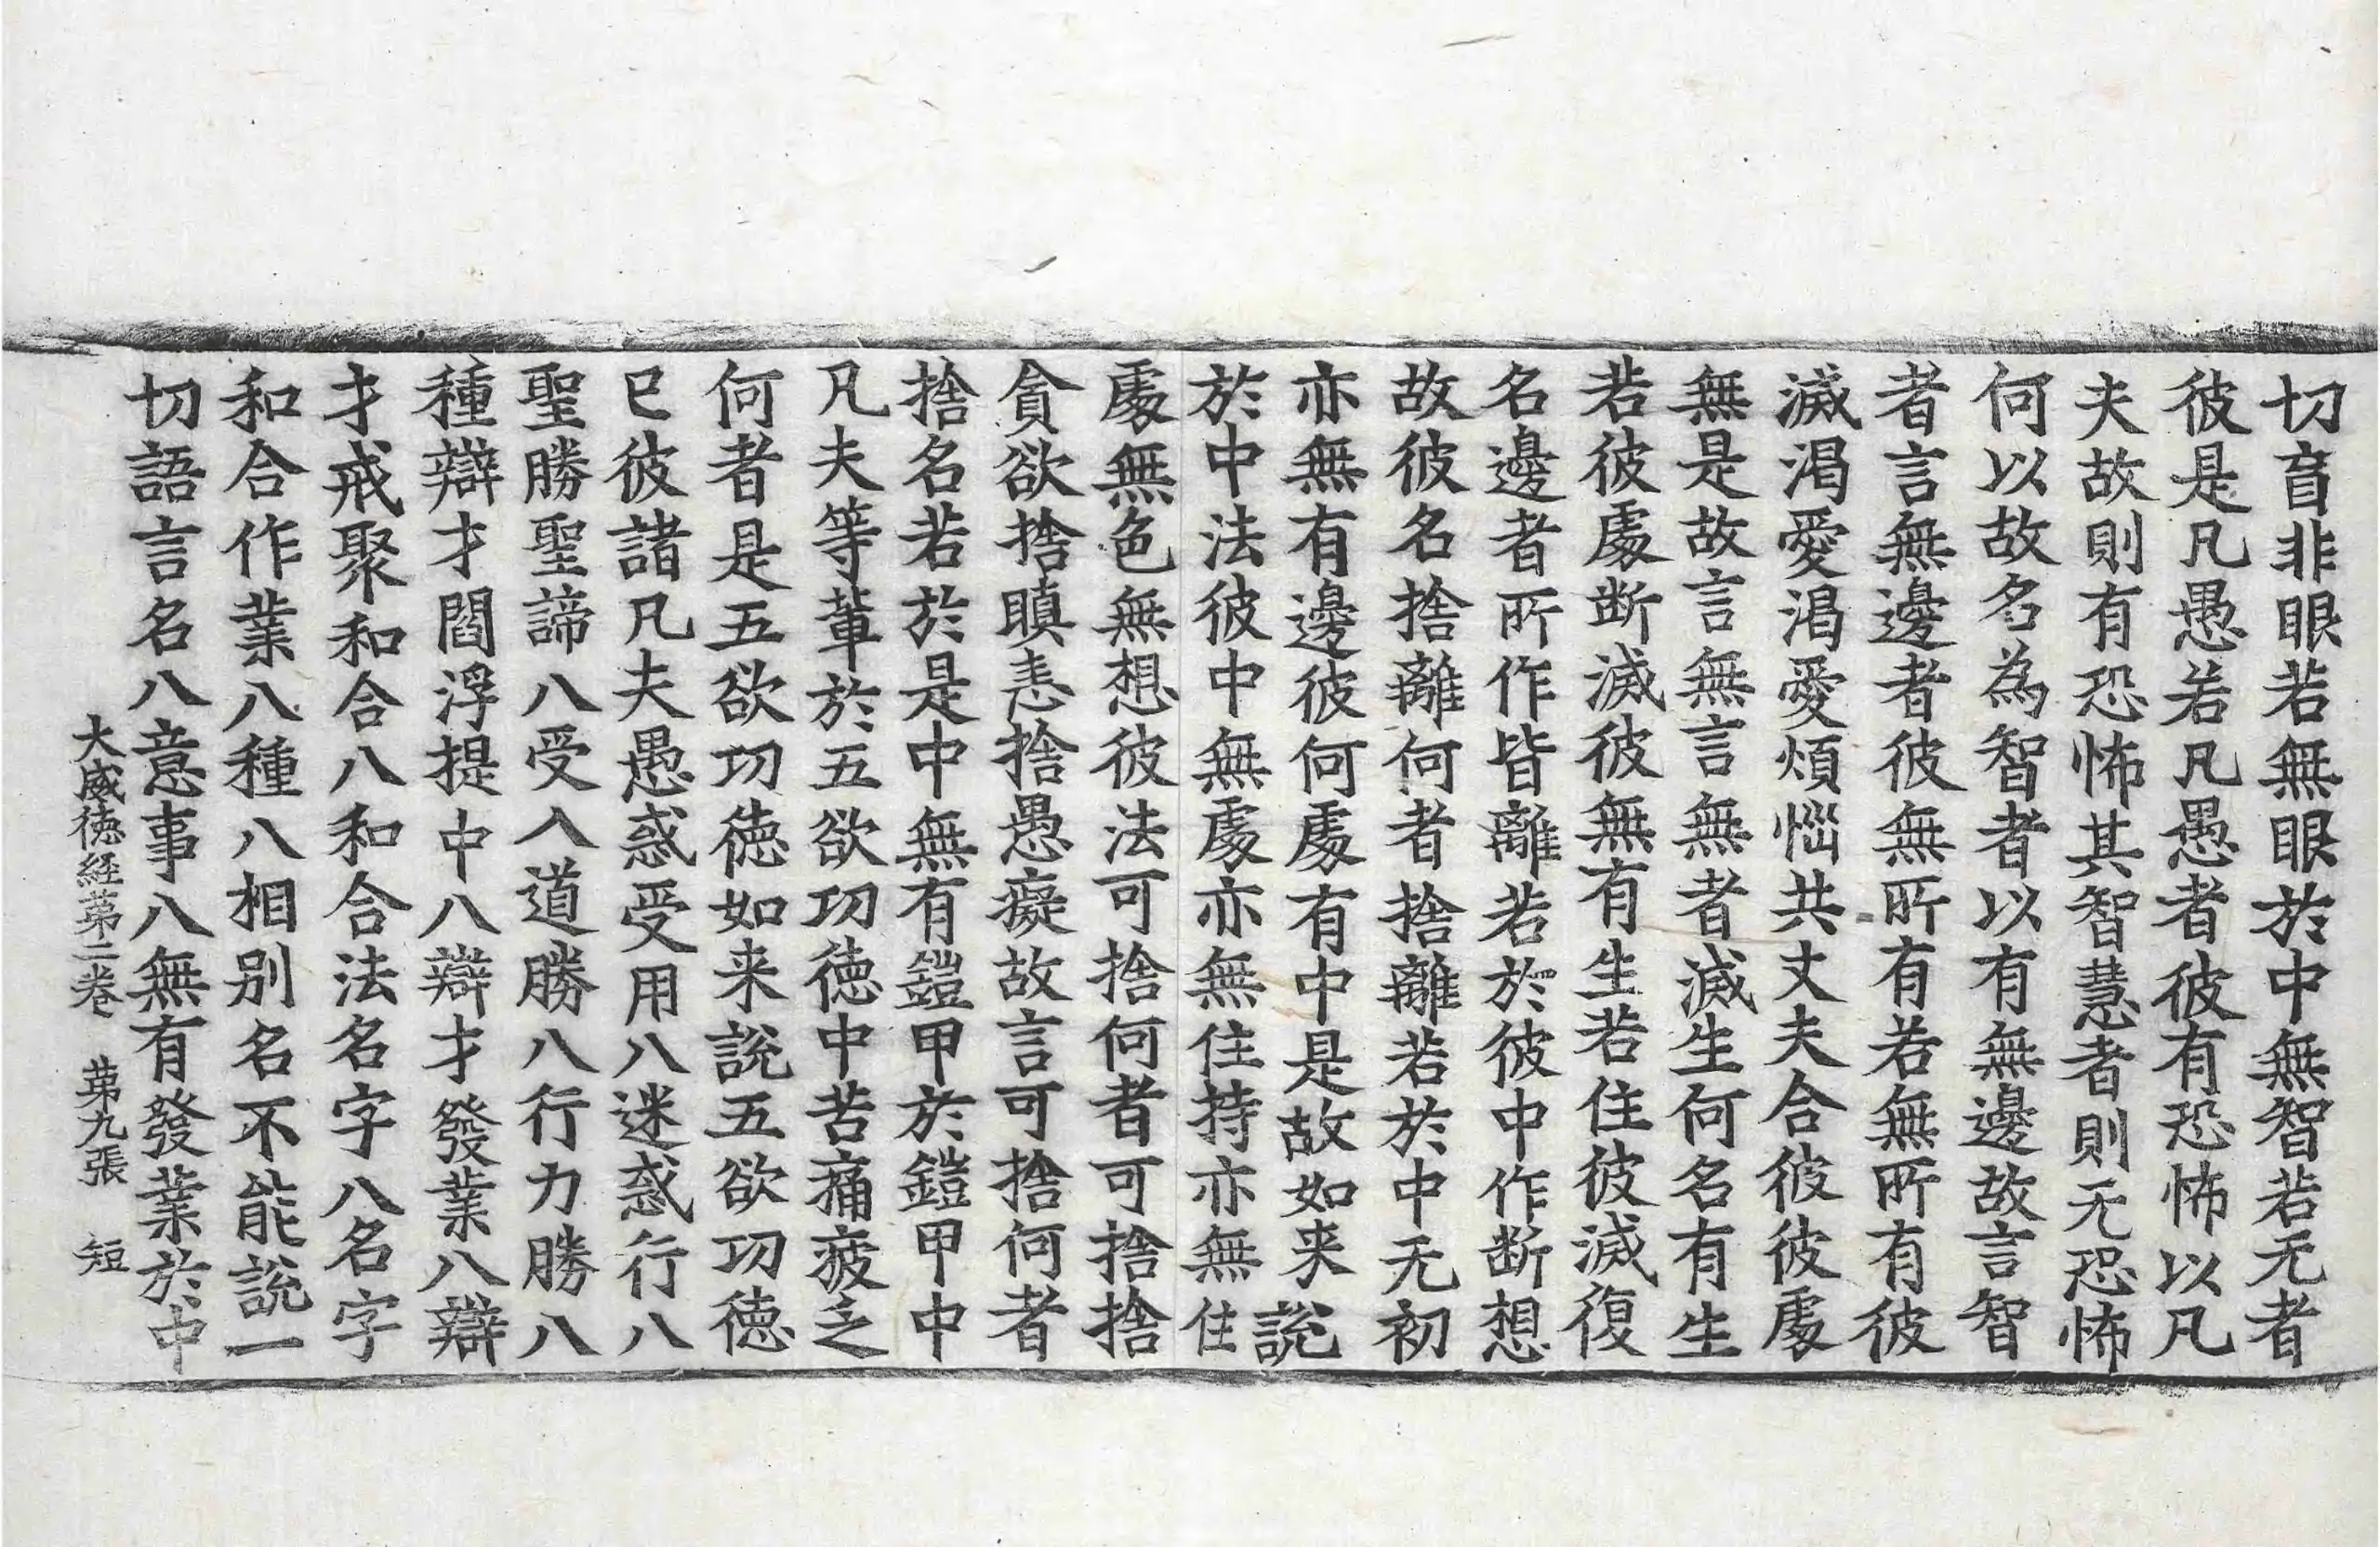 切盲非眼若無眼於中無智若无者
彼是凡愚若凡愚者彼有恐怖以凡
夫故則有恐怖其智慧者則无恐怖
何以故名為智者以有無邊故言智
者言無邊者彼無所有若無所有彼
滅渴愛渴愛煩惱共丈夫合彼彼處
無是故言無言無者滅生何名有生
若彼處断滅彼無有生若住彼滅復
名邊者所作皆離若於彼中作断想
故彼名捨離何者捨離若於中无初
亦無有邊彼何處有中是故如来説
於中法彼中無處亦無住持亦無住
處無色無想彼法可捨何者可捨捨
貪欲捨瞋恚捨愚癡故言可捨何者
捨名若於是中無有鎧甲於鎧甲中
凡夫等輩於五欲切德中苦痛疲乏
何者是五欲切徳如来説五欲切徳
已彼諸凡夫愚惑受用八迷惑行八
聖勝聖諦八受入道勝八行力勝八
種辯才閻浮提中八辯才發業八辯
才戒聚和合八和合法名字八名字
和合作業八種八相別名不能説一
切語言名八意事八無有發業於中
大威徳経苐二卷 苐九張 短